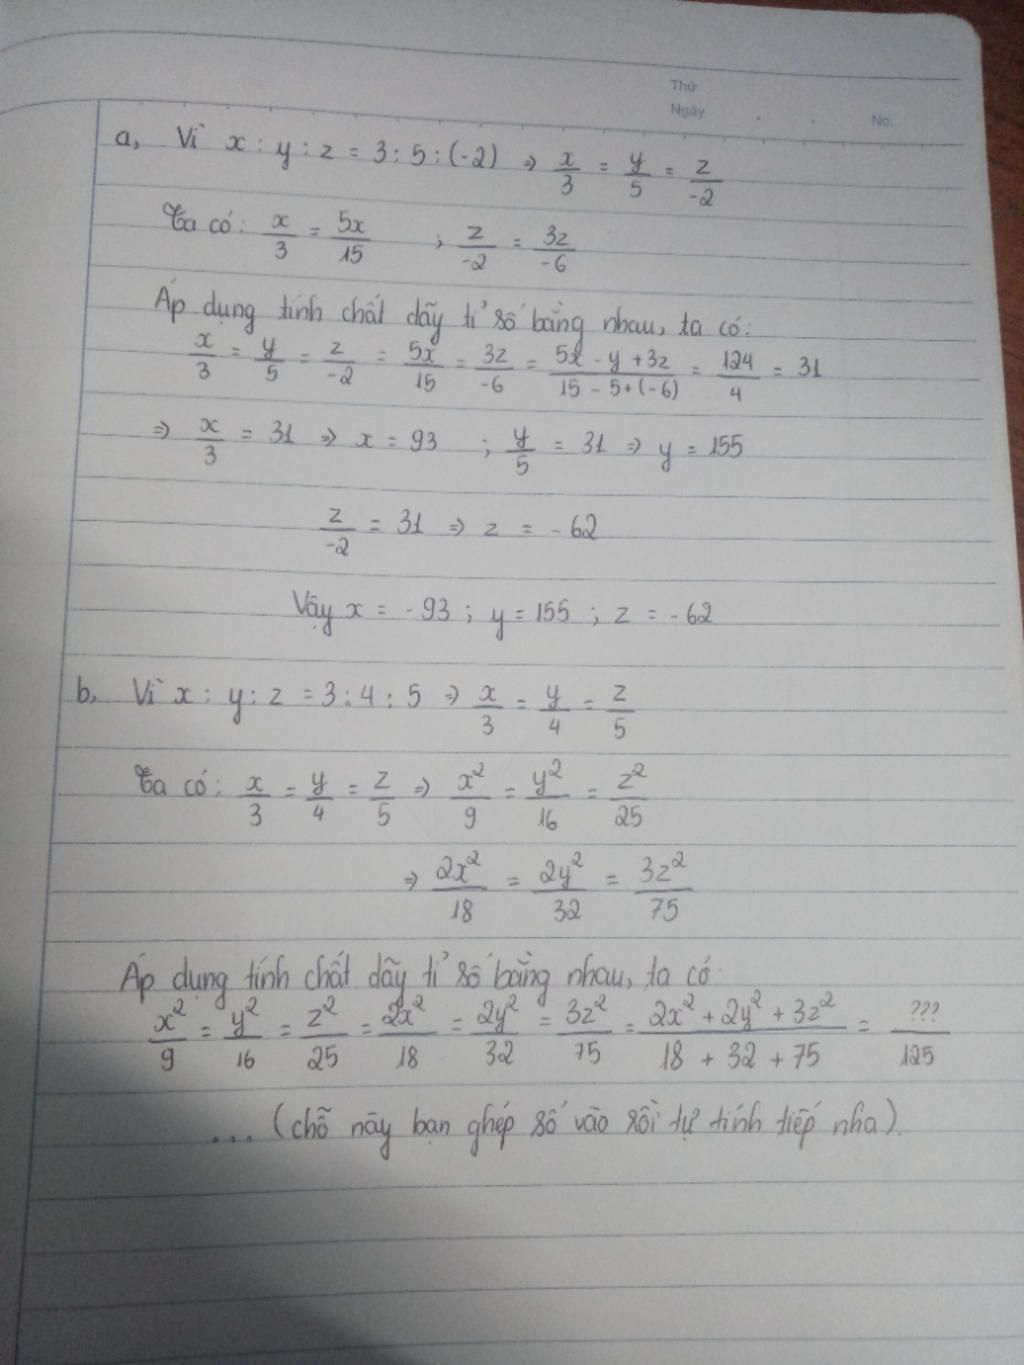 Thứ
Ngày No.
a, Vì x : y : z = 3 : 5 : (-2) ⇒ x/3 = y/5 = z/-2
Ta có: x/3 = 5x/15 ; z/-2 = 3z/-6
Áp dụng tính chất dãy tỉ số bằng nhau, ta có:
x/3 = y/5 = z/-2 = 5x/15 = 3z/-6 = 5x - y + 3z/15 - 5 + (-6) = 124/4 = 31
⇒ x/3 = 31 ⇒ x = 93 ; y/5 = 31 ⇒ y = 155
z/-2 = 31 ⇒ z = -62
Vậy x = -93 ; y = 155 ; z = -62
b, Vì x : y : z = 3 : 4 : 5 ⇒ x/3 = y/4 = z/5
Ta có: x/3 = y/4 = z/5 ⇒ x²/9 = y²/16 = z²/25
⇒ 2x²/18 = 2y²/32 = 3z²/75
Áp dụng tính chất dãy tỉ số bằng nhau, ta có
x²/9 = y²/16 = z²/25 = 2x²/18 = 2y²/32 = 3z²/75 = 2x² + 2y² + 3z²/18 + 32 + 75 = ???/125
... (chỗ này bạn ghép số vào rồi tự tính tiếp nha).